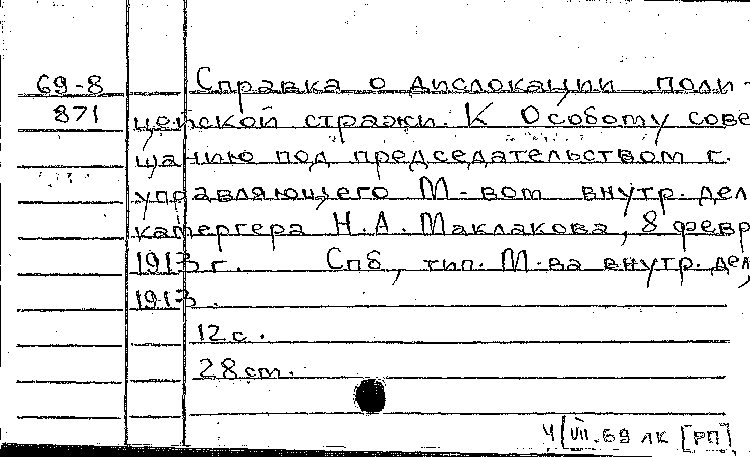 69-8 Справка о дислокации поли-
871 цейской стражи. К Особому сове
щанию под председательством г.
управляющего М-вом внутр. дел
камергера Н.А. Маклакова, 8 февр
1913 г. Спб, тип. М-ва внутр. дел,
1913.
12 с.
28 см.
4/VII.69 лк [РП]